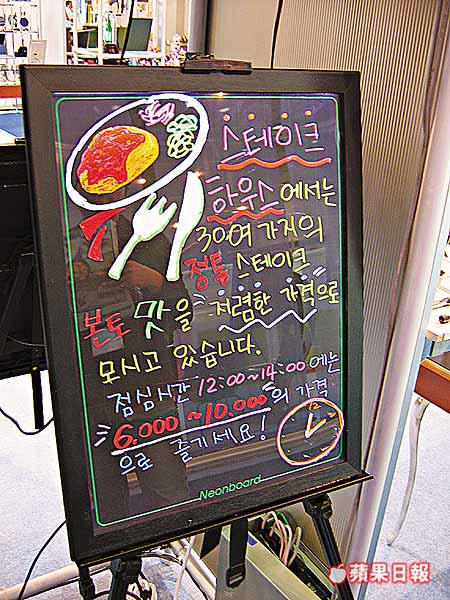 스테이크
하우스에서는
30여 가지의
정통 스테이크
본토 맛을 "저렴한 가격으로
모시고 있습니다.
점심시간 12:00~14:00에는
6.000~10.000"의 가격
으로 즐기세요!
Neonboard
蘋果日報